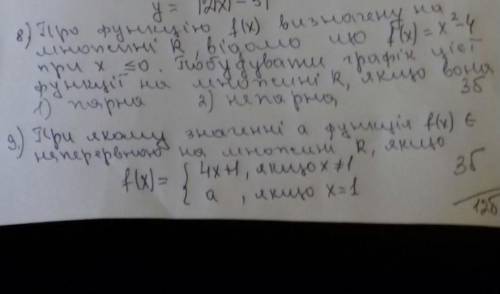 y = |2|x| - 3|
8) Про функцію f(x) визначену на
множині R, відомо що f(x) = x² - 4
при x ≤ 0. Побудувати графік цієї
функції на множині R, якщо вона
1) парна 2) непарна 3б
9.) При якому значенні a функція f(x) є
неперервною на множині R, якщо
f(x) = { 4x+1, якщо x ≠ 1 3б
a, якщо x = 1
12б